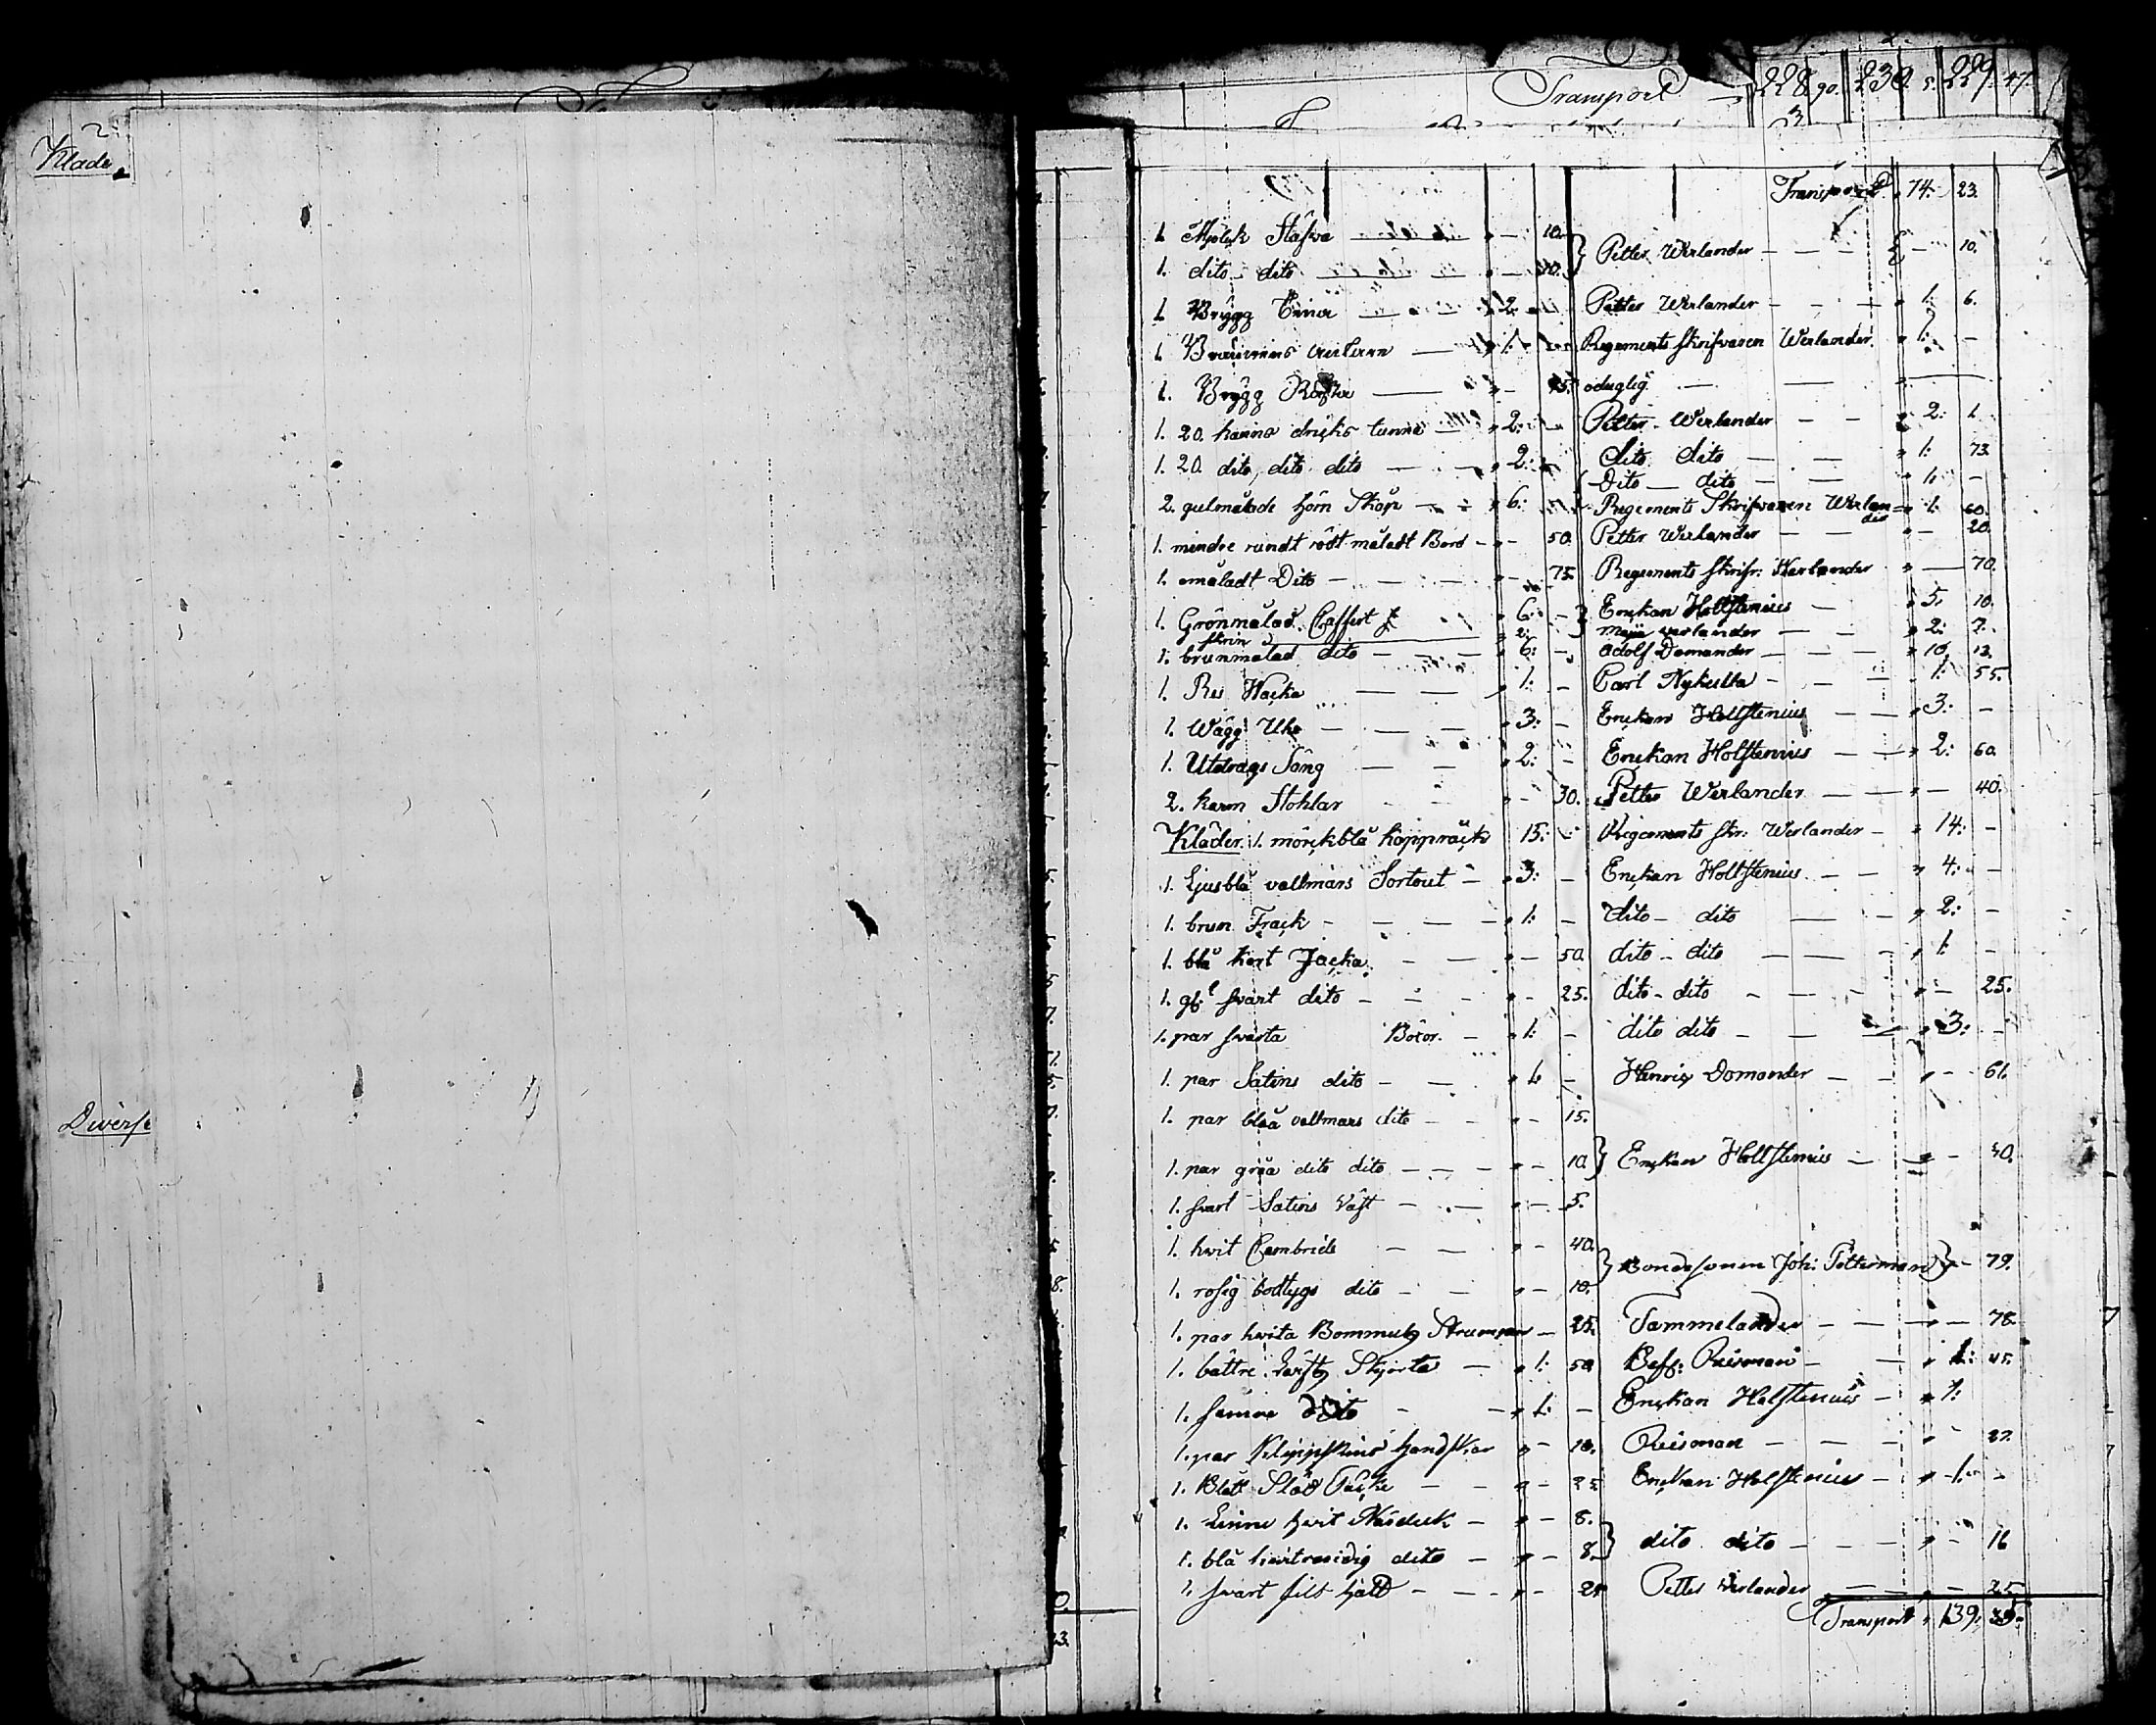 2
Kläde
Diverse
Transport 228. 90. 230. 5. 229. 47.
3
Transport 74: 23.
1. Mjölk Stäfva — 10.
1. dito dito — 10. } Petter Werlander — 10.
1. Brygg — 2: — Petter Werlander — 1: 6.
1. Bränvins — 1: — Regements skrifvaren Werlander 1: —
1. Brygg — 25. oduglig —
1. 20. kanns dricks tunna — 2: — Petter Werlander — 2: 1.
1. 20. dito dito dito — 2: — dito dito — 1: 73.
Dito — dito — 1: —
2. gulmålade hörn Skåp — 6: — Regements Skrifvaren Werlander 1: 60.
1. mindre rundt rödt måladt Bord — 50. Petter Werlander — 20.
1. omåladt Dito — 75. Regements skrifv: Werlander — 70.
1. Grönmålad Chaffert — 6: — } Enckan Hollstenius — 5. 10.
skrin — 2: Maja Werlander — 2: 2.
1. brunmålad dito — 6: — Adolf Domander — 10. 13.
1. Res — 1: — Carl Nykulla — 1: 55.
1. Wägg Uhr — 3: — Enckan Hollstenius — 3: —
1. Utdrags Säng — 2: — Enckan Holstenius — 2: 60.
2. karm Stohlar — 30. Petter Werlander — 40.
Kläder. 1. mörckblå kappråck 15: — Regements skr: Werlander — 14: —
1. Ljusblå vallmars Sortout — 3: — Enckan Hollstenius — 4: —
1. brun Frack — 1: — dito — dito — 2: —
1. blå kort Jacka — 50. dito — dito — 1: —
1. gl. svart dito — 25. dito — dito — 25.
1. par svarta Böxor. — 1: — dito dito — 3: —
1. par Satins dito — 1. — Henric Domander — 61.
1. par blåa vallmars dito — 15.
1. par gråa dito dito — 10. } Enckan Hollstenius — 40.
1. svart Satins Väst — 5.
1. hvit Cambrids — 40.
1. rosig bodtygs dito — 10. } Bondesonen Joh: Petterman — 79.
1. par hvita Bommulls Strumpor — 25. Tammelander — 78.
1. bättre Skjorta — 1: 50 Bef: Reisman — 1: 45.
1. sämre dito — 1: — Enckan Holstenius — 1:
1. par Klippskins handskar — 10. Reisman — 27.
1. Blått Täcke — 25 Enckan Holstenius — 1: —
1. Linne hvit Näsduk — 8.
1. blå hvitrandig dito — 8. } dito dito — 16
1. svart filt hatt — 24 Petter Werlander — 25
Transport 139: 39.